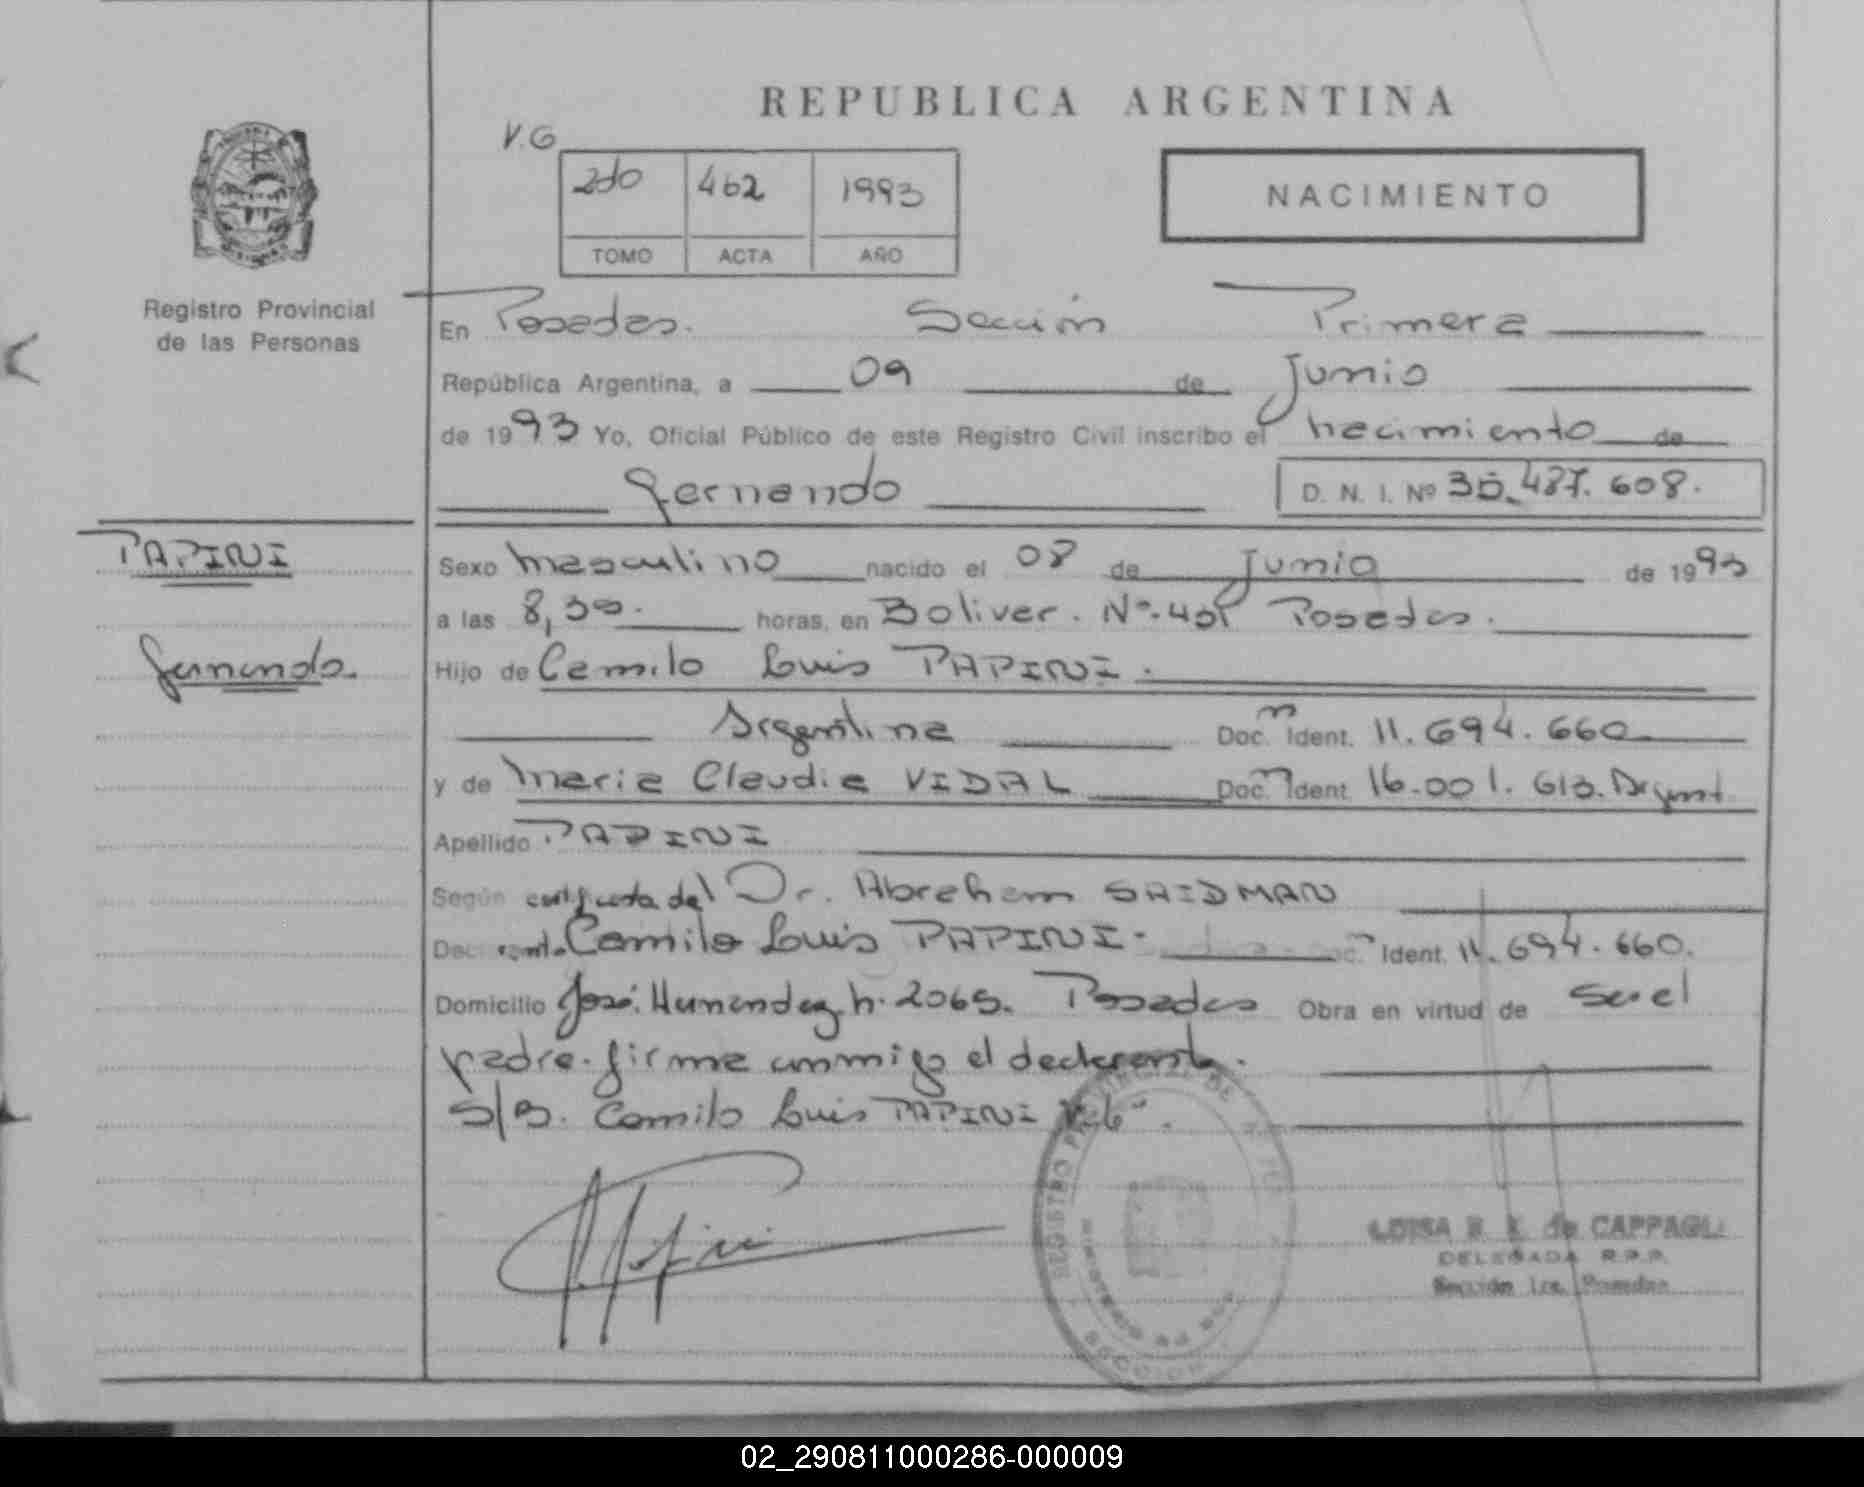 REPUBLICA ARGENTINA
V.G
2do 462 1993
TOMO ACTA AÑO
NACIMIENTO
Registro Provincial
de las Personas
En Posadas. Sección Primera
República Argentina, a 09 de Junio
de 1993 Yo, Oficial Público de este Registro Civil inscribo el nacimiento de
Fernando
D. N. I. Nº 487. 608.
PAPINI
Fernando.
Sexo masculino nacido el 08 de Junio de 1993
a las 8,30. horas, en Bolivar. Nº. Posadas.
Hijo de Camilo Luis PAPINI.
Argentina Doc. Ident. 11.694.660
y de Maria Claudia VIDAL Doc. Ident. 16.001.613. Argent
Apellido PAPINI
Según del Dr. Abraham SAIDMAN
Camilo Luis PAPINI. Ident. 11.694.660.
Domicilio José Hernandez n. 2065. Posadas Obra en virtud de ser el
padre. firma conmigo el declarante.
S/B. Camilo Luis PAPINI
Papini
REGISTRO PROVINCIAL DE
LUISA de CAPPAGLI
DELEGADA R.P.P.
Sección 1ra. Posadas
02_290811000286-000009